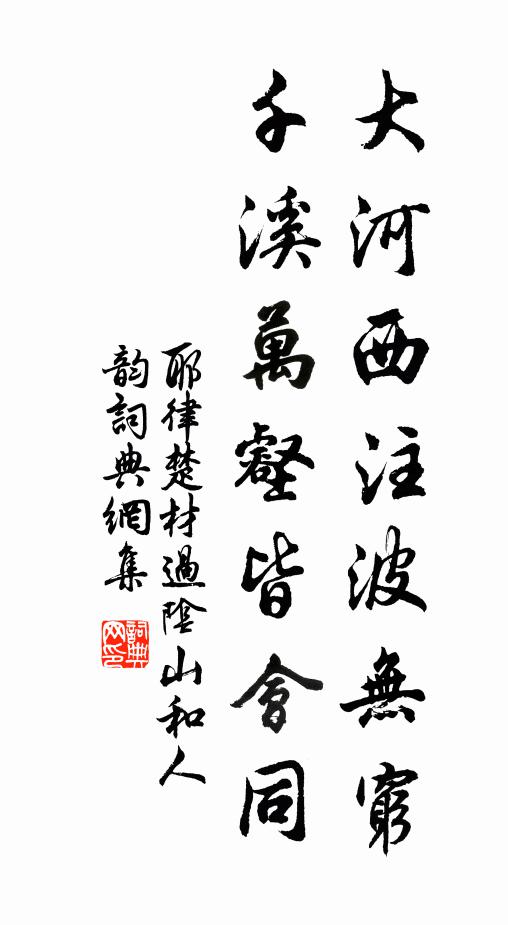 大河西注波無窮
千溪萬壑皆會同
耶律楚材過陰山和人
韵詞典網集
詞典网印